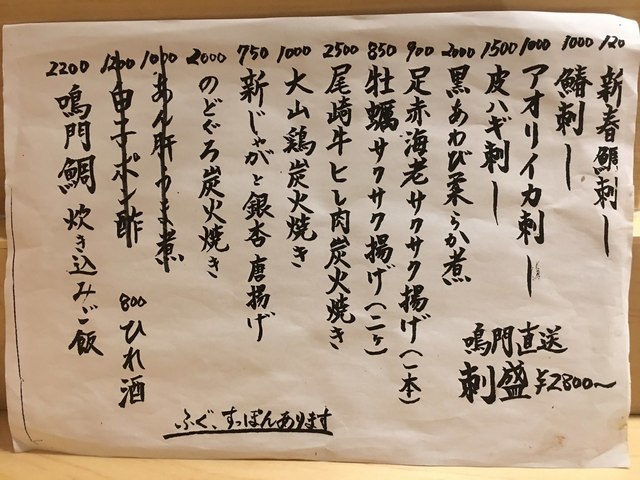 120 新春鯛刺し
1000 鰆刺し
1000 アオリイカ刺し
1500 皮ハギ刺し
鳴門直送
刺盛 ¥2800〜
2000 黒あわび柔らか煮
900 足赤海老サクサク揚げ(一本)
850 牡蠣サクサク揚げ(二ヶ)
2500 尾崎牛ヒレ肉炭火焼き
1000 大山鶏炭火焼き
750 新じゃがと銀杏唐揚げ
2000 のどぐろ炭火焼き
1000 あん肝うま煮
1200 白子ポン酢
800 ひれ酒
2200 鳴門鯛炊き込みご飯
ふぐ、すっぽんあります